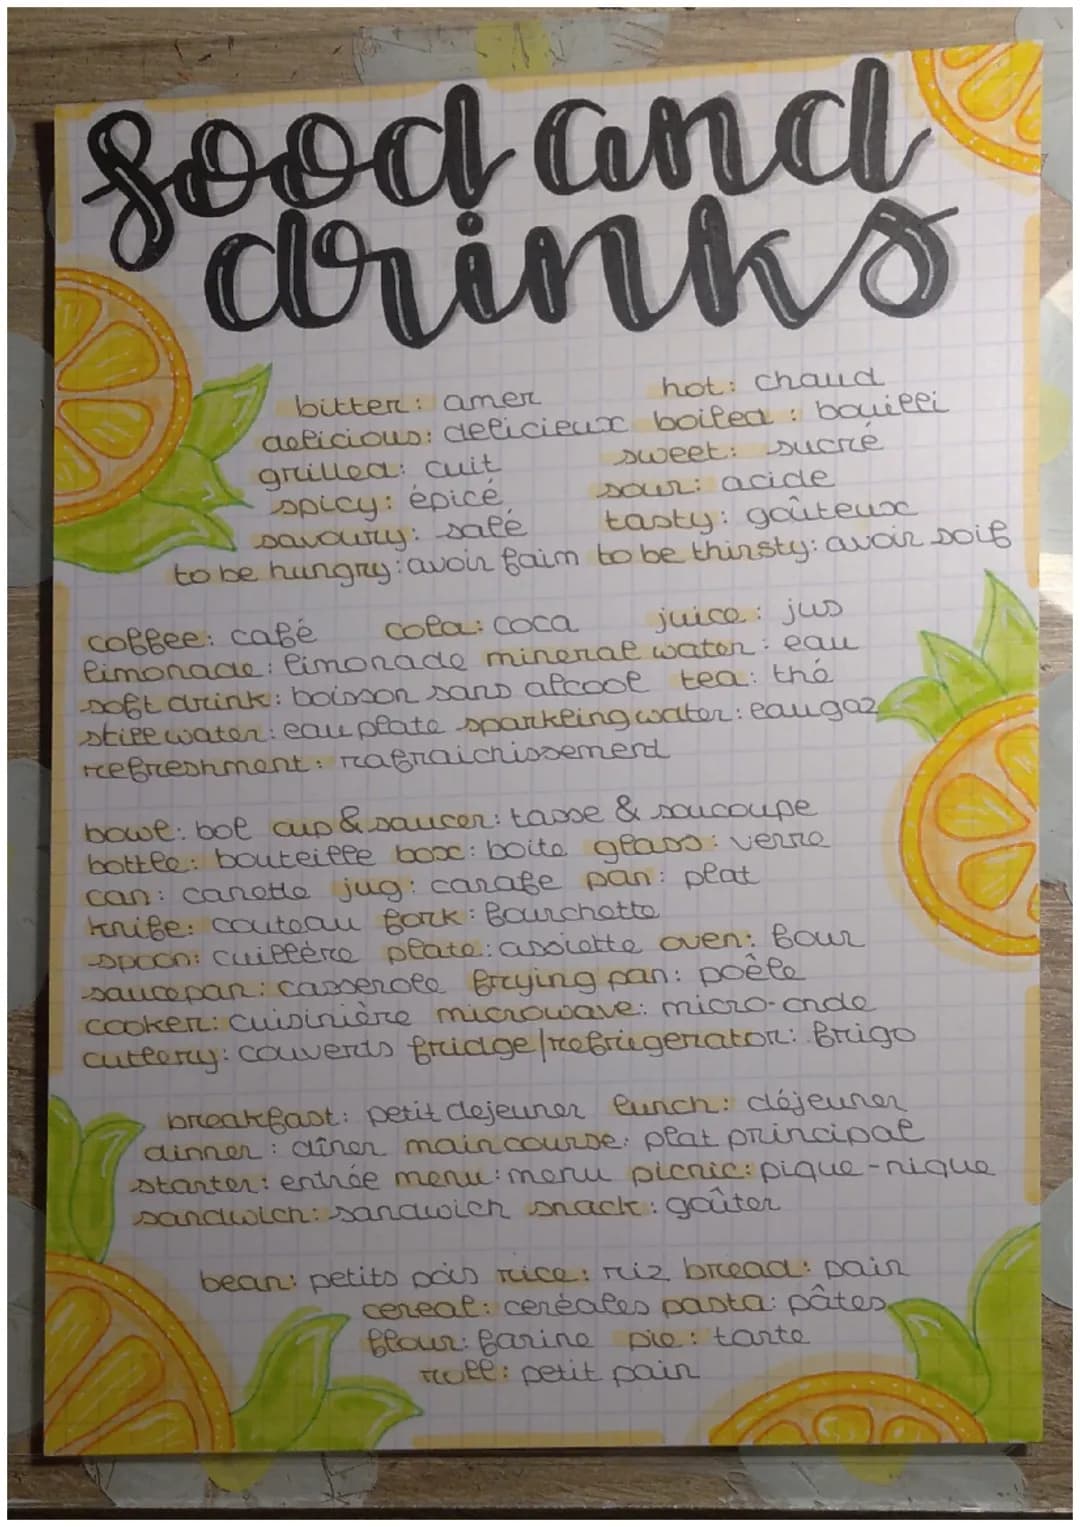 food and
drinks
bitter: amer hot: chaud
delicious: delicieux boiled: bouilli
grilled: cuit sweet: sucré
spicy: épicé sour: acide
savoury: salé tasty: goûteux
to be hungry: avoir faim to be thirsty: avoir soif
coffee: café cola: coca juice: jus
limonade: limonade mineral water: eau
soft drink: boisson sans alcool tea: thé
still water: eau plate sparkling water: eau gaz
refreshment: rafraichissement
bowl: bol cup & saucer: tasse & soucoupe
bottle: bouteille box: boite glass: verre
can: canette jug: carafe pan: plat
knife: couteau fork: fourchette
spoon: cuillère plate: assiette oven: four
saucepan: casserole frying pan: poêle
cooker: cuisinière microwave: micro-onde
cutlery: couverts fridge/refrigerator: frigo
breakfast: petit dejeuner lunch: déjeuner
dinner: dîner main course: plat principal
starter: entrée menu: menu picnic: pique-nique
sandwich: sandwich snack: goûter
bean: petits pois rice: riz bread: pain
cereal: ceréales pasta: pâtes
flour: farine pie: tarte
roll: petit pain